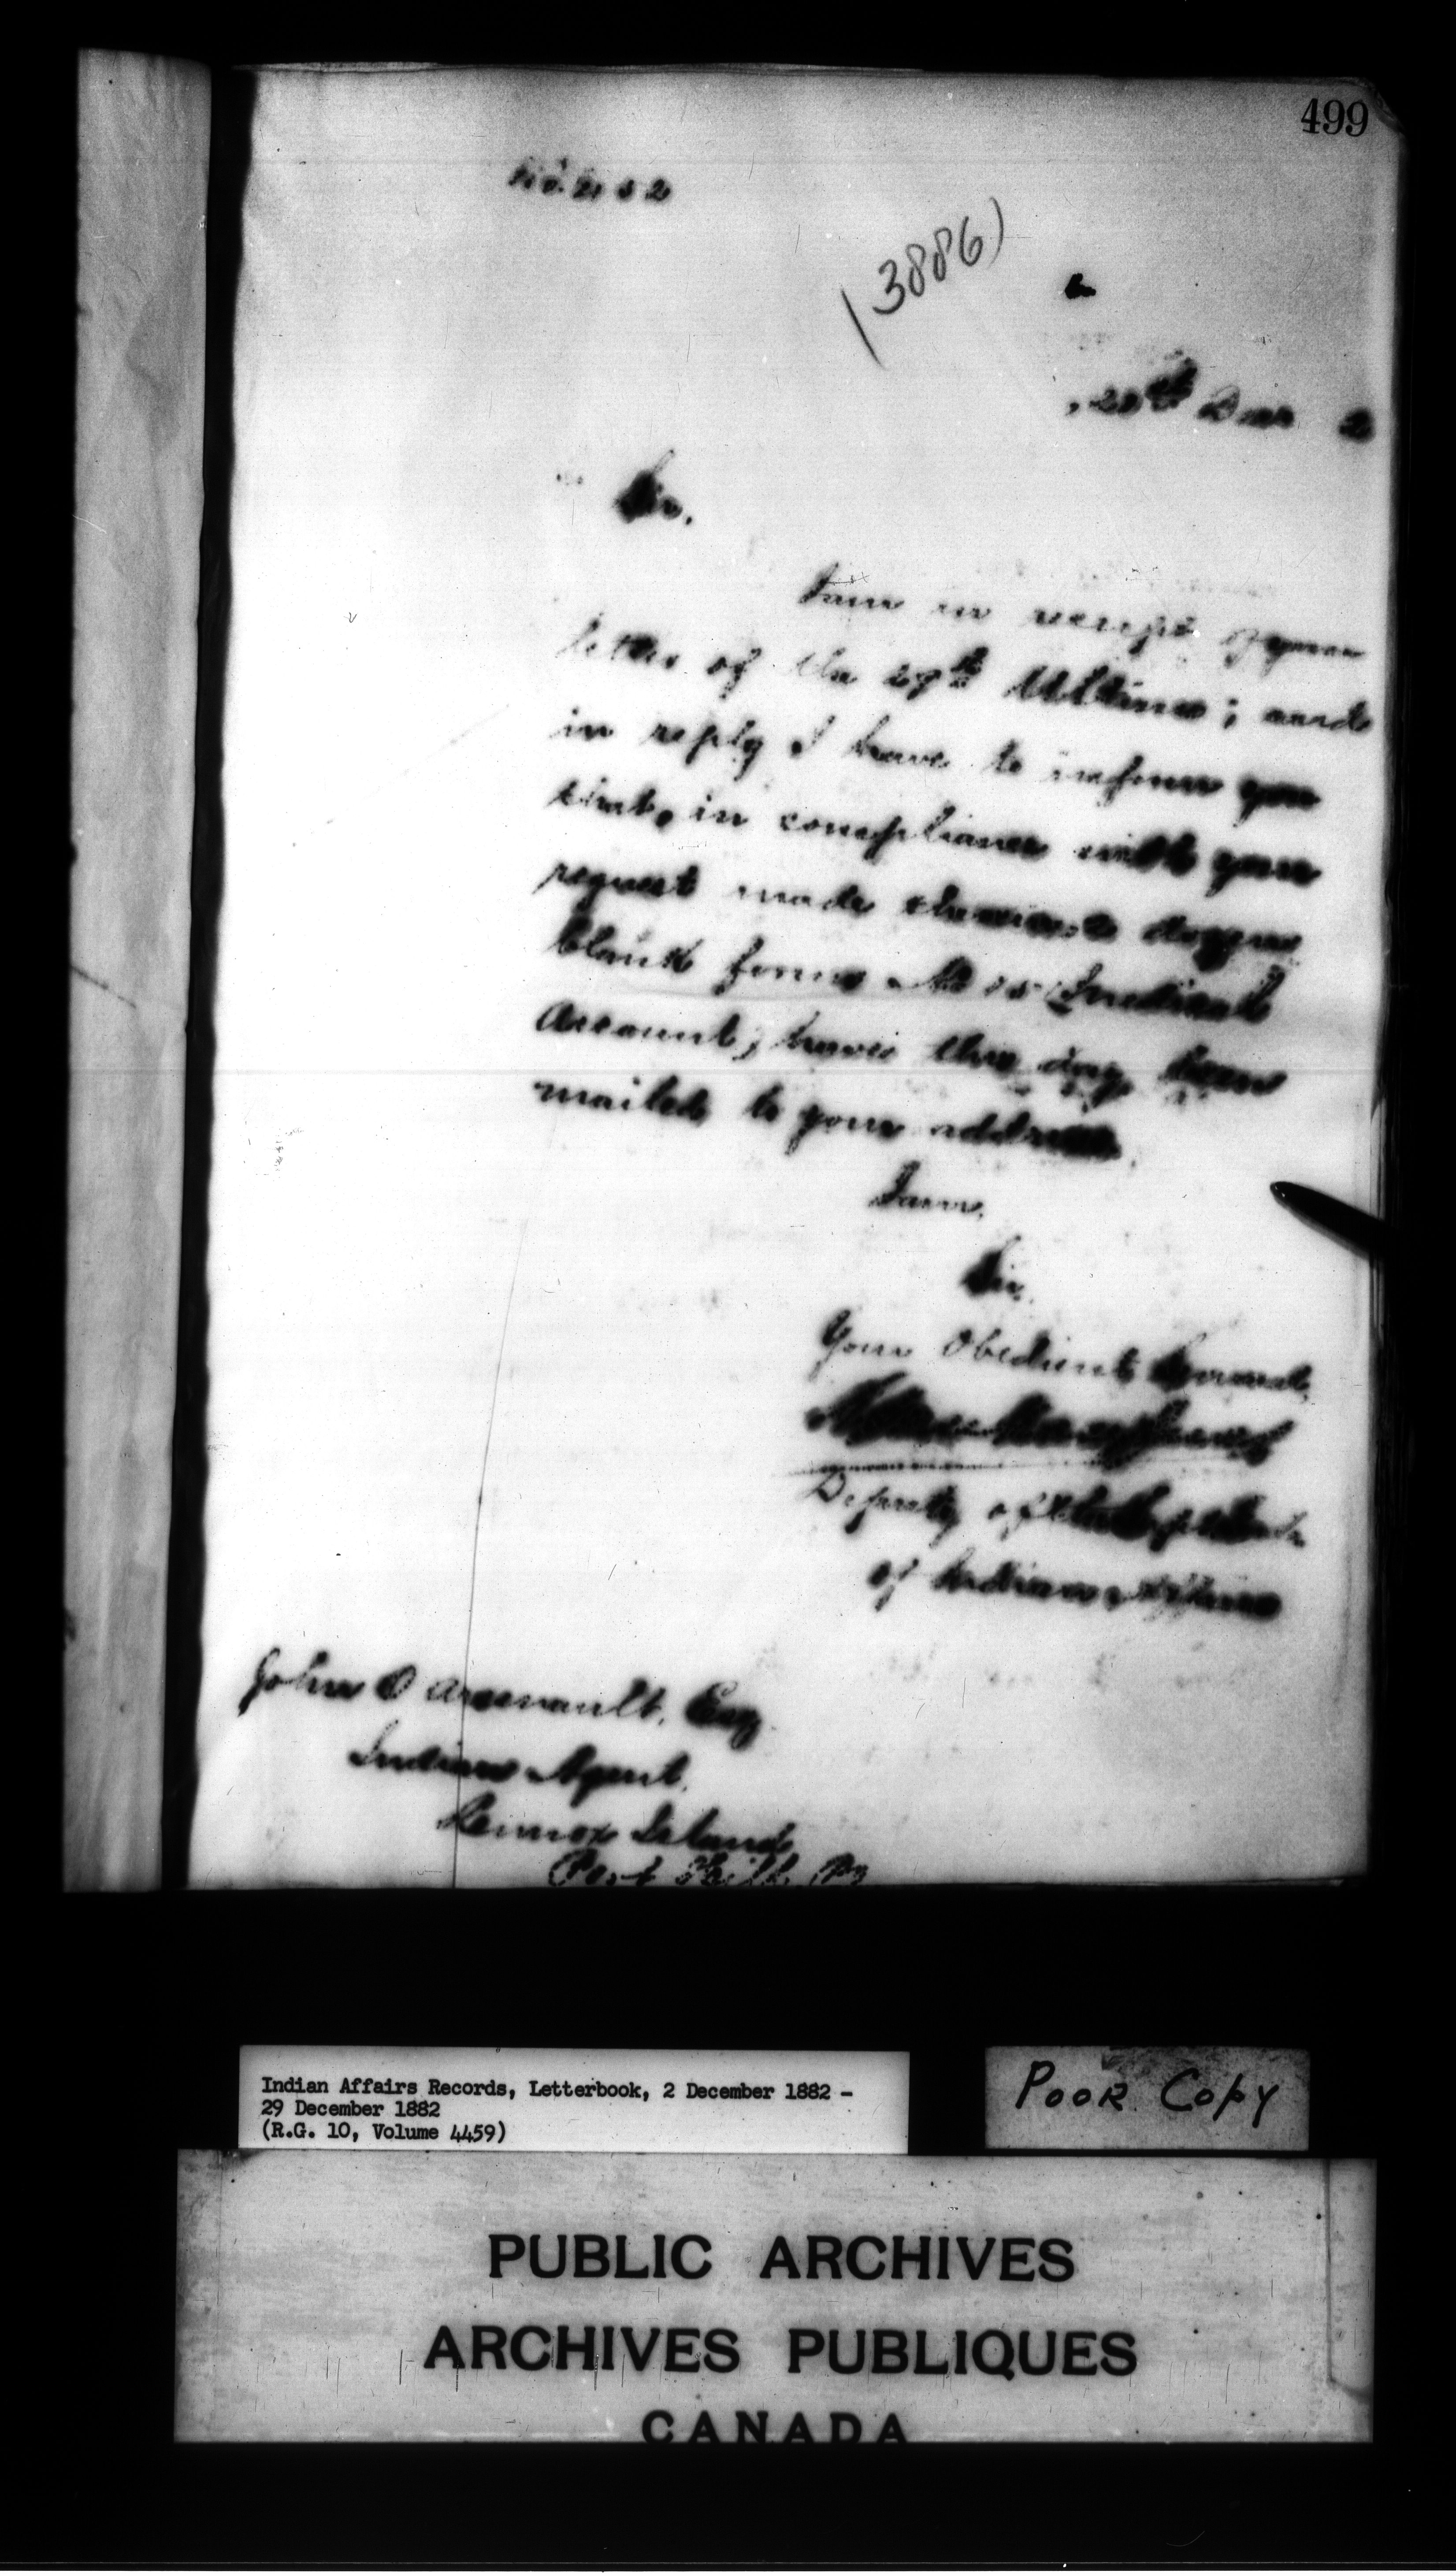 499
(3886)
20th Dec 2
Sir,
I am in receipt of your
letter of the 29th Ultimo; and
in reply I have to inform you
that, in compliance with your
request made therein, dozen
blank forms No 15 (Medical
Account) have this day been
mailed to your address.
I am,
Sir,
Your Obedient Servant,
Deputy of the Supt. Genl.
of Indian Affairs
John O Arsenault, Esq
Indian Agent,
Lennox Island
Port Hill, P
Indian Affairs Records, Letterbook, 2 December 1882 -
29 December 1882
(R.G. 10, Volume 4459)
POOR COPY
PUBLIC ARCHIVES
ARCHIVES PUBLIQUES
CANADA